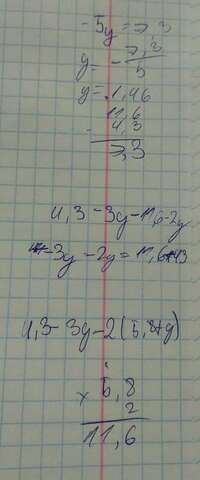 -5y = 7,3
y = - 7,3
5
y = 1,46
11,6
- 4,3
7,3
4,3 - 3y - 11,6 - 2y
-3y - 2y = 11,6 - 4,3
4,3 - 3y - 2(5,8+y)
× 5,8
2
11,6